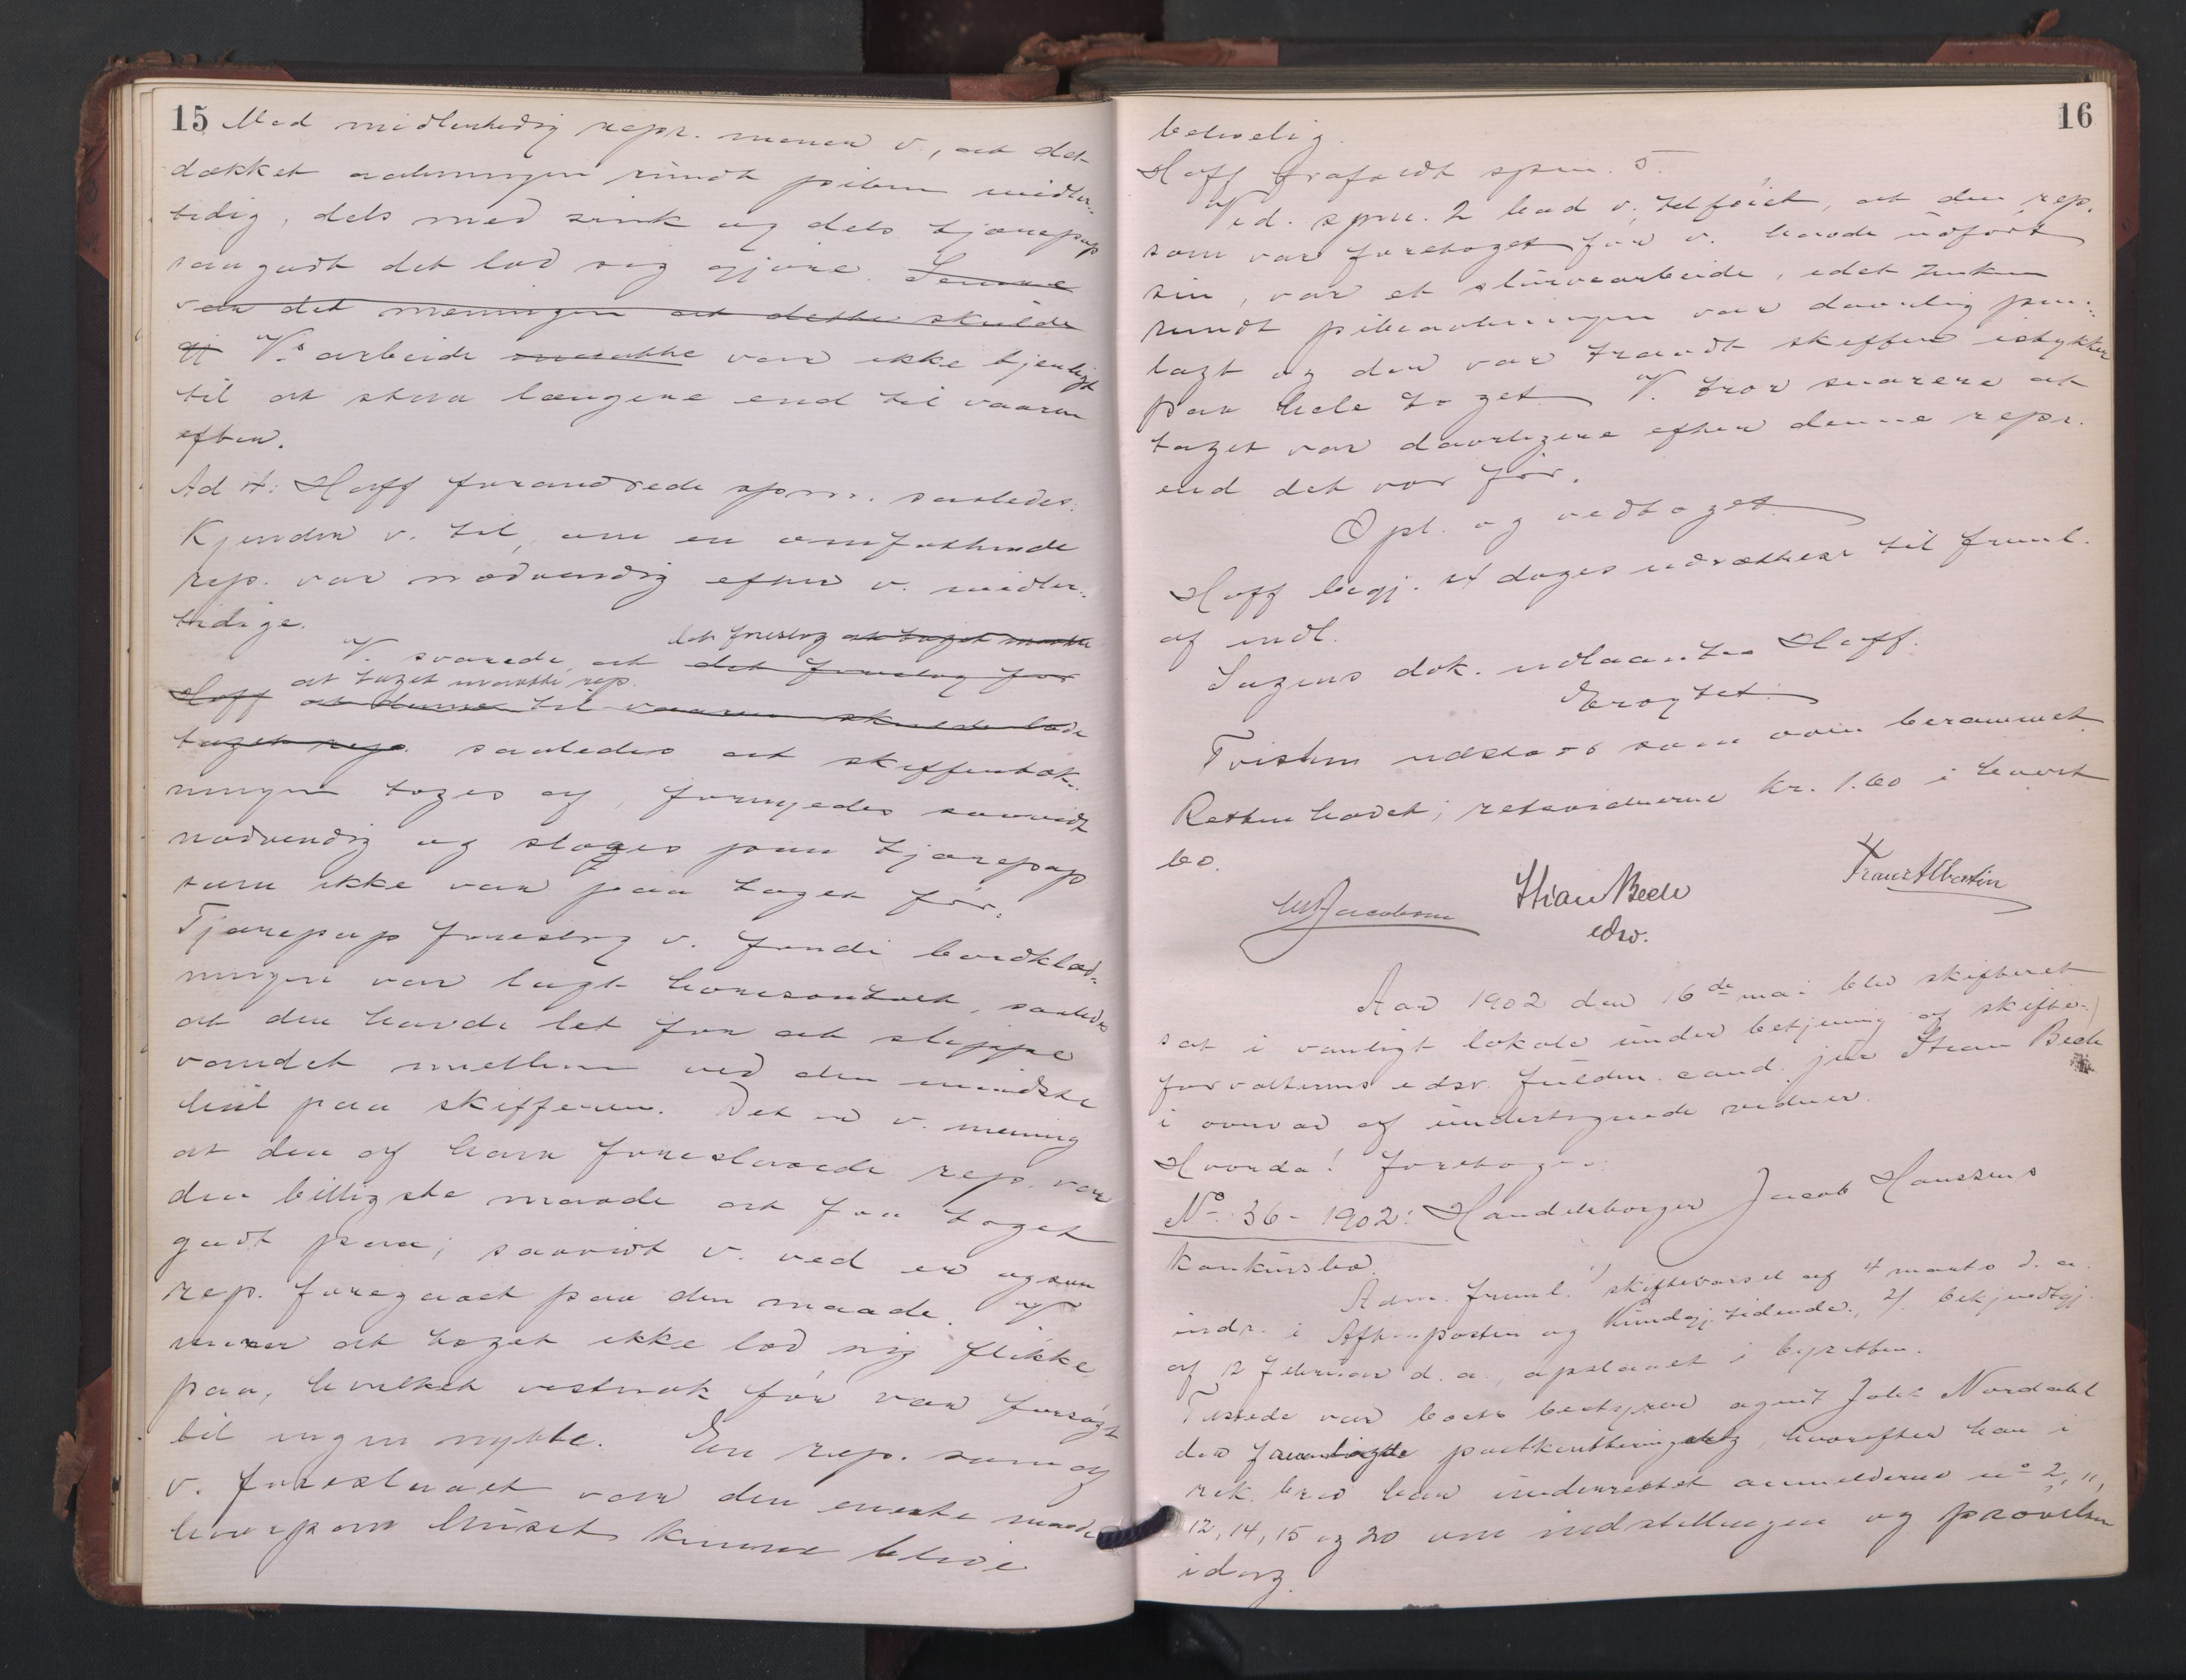 15
Med midlertidig repr. mener v., at det
dækket aabningen rundt piben midler-
tidig, dels med zink og dels tjærepap
saa godt det lod sig gjøre. Senere
var det meningen at dette skulde
V.s arbeide maatte var ikke tjenligt
til at staa længere end til vaaren
efter.
Ad 4: Hoff forandrede spm. saaledes:
Kjender v. til, om en omfattende
rep. var nødvendig efter v. midler-
tidige.
V. svarede, at det foreslog for
det foreslog at taget maatte
at taget maatte rep.
Hoff at denne til vaaren skulde lade
taget rep. saaledes at skiffertæk-
ningen toges af, fornyedes saavidt
nødvendig og sloges paa tjærepap
som ikke var paa taget før.
Tjærepap foreslog v. fordi bordklæd-
ningen var lagt horisontalt, saaledes
at den havde let for at slippe
vandet mellem ved den mindste
hul paa skifferen. Det er v. mening
at den af ham foreslaaede rep. var
den billigste maade at faa taget
godt paa; saavidt v. ved er ogsaa
rep. foregaaet paa den maade. V.
mener at taget ikke lod sig flikke
paa, hvilket vistnok før var forsøgt
til ingen nytte. En rep. som af
v. foreslaaet var den eneste maade
hvorpaa huset kunne blive
16
beboelig.
Hoff frafaldt spm. 5.
Ved spm. 2 bad v. tilføiet, at den rep.
som var foretaget før v. havde udført
sin, var et slurvearbeide, idet zinken
rundt pibeaabningen var daarlig paa-
lagt og der var traadt skiffer istykker
paa hele taget. V. tror snarere at
taget var daarligere efter denne repr.
end det var før.
Opl. og vedtaget.
Hoff begj. 14 dages udsættelse til freml.
af indl.
Sagens dok. udlaantes Hoff.
Eragtet:
Tvisten udstaar som oven berammet.
Retten hævet; retsvidnerne kr. 1.60 i hvert
bo.
Stian Bech
edsv.
Franz Albertin
Aar 1902 den 16de mai blev skifteret
sat i vanligt lokale under betjening af skifte-
forvalterens edsv. fuldm. cand. jur Stian Bech
i overvær af undertegnede vidner.
Hvorda! foretoges:
No 36 - 1902: Handelsborger Jacob Hanssens
konkursbo.
Adm. freml. 1) skiftevarsel af 4 marts d. a.
indr. i Aftenposten og Kundgj. tidende., 2) bekjendtgj.
af 12 februar d. a., opslaaet i byretten.
Tilstede var boets bestyrer agent Joh. Nordahl
der fremlagde postkvitteringsbog, hvorefter han i
rek. brev har underrettet anmelderne no 2, 11,
12, 14, 15 og 20 om indstillingen og prøvelsen
idag.